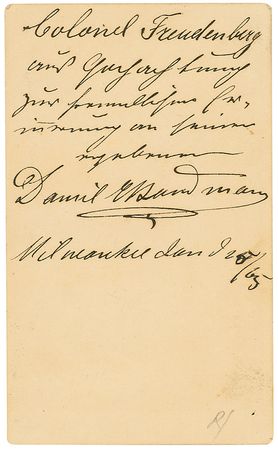 Colonel Freudenberg
aus Hochachtung
zur freundlichen Er-
innerung an seinen
ergebenen
Daniel E Bandmann
Milwaukee Jan
/65